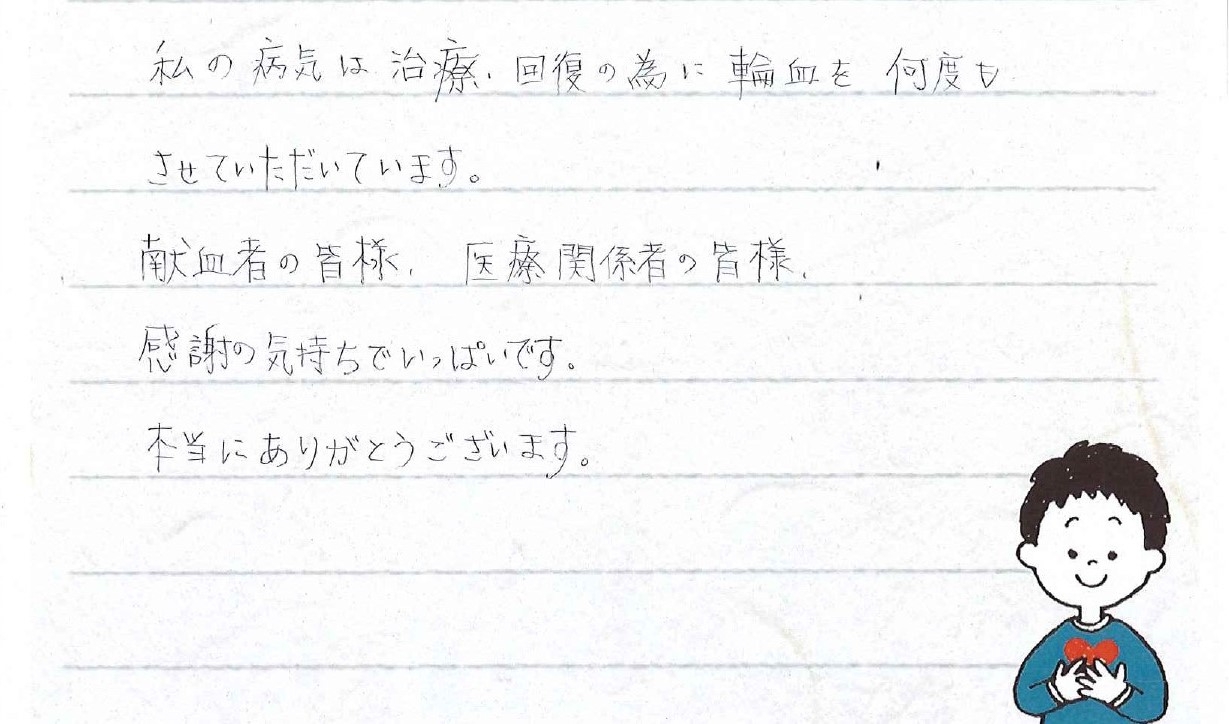 私の病気は治療、回復の為に輪血を何度も
させていただいています。
献血者の皆様、医療関係者の皆様、
感謝の気持ちでいっぱいです。
本当にありがとうございます。